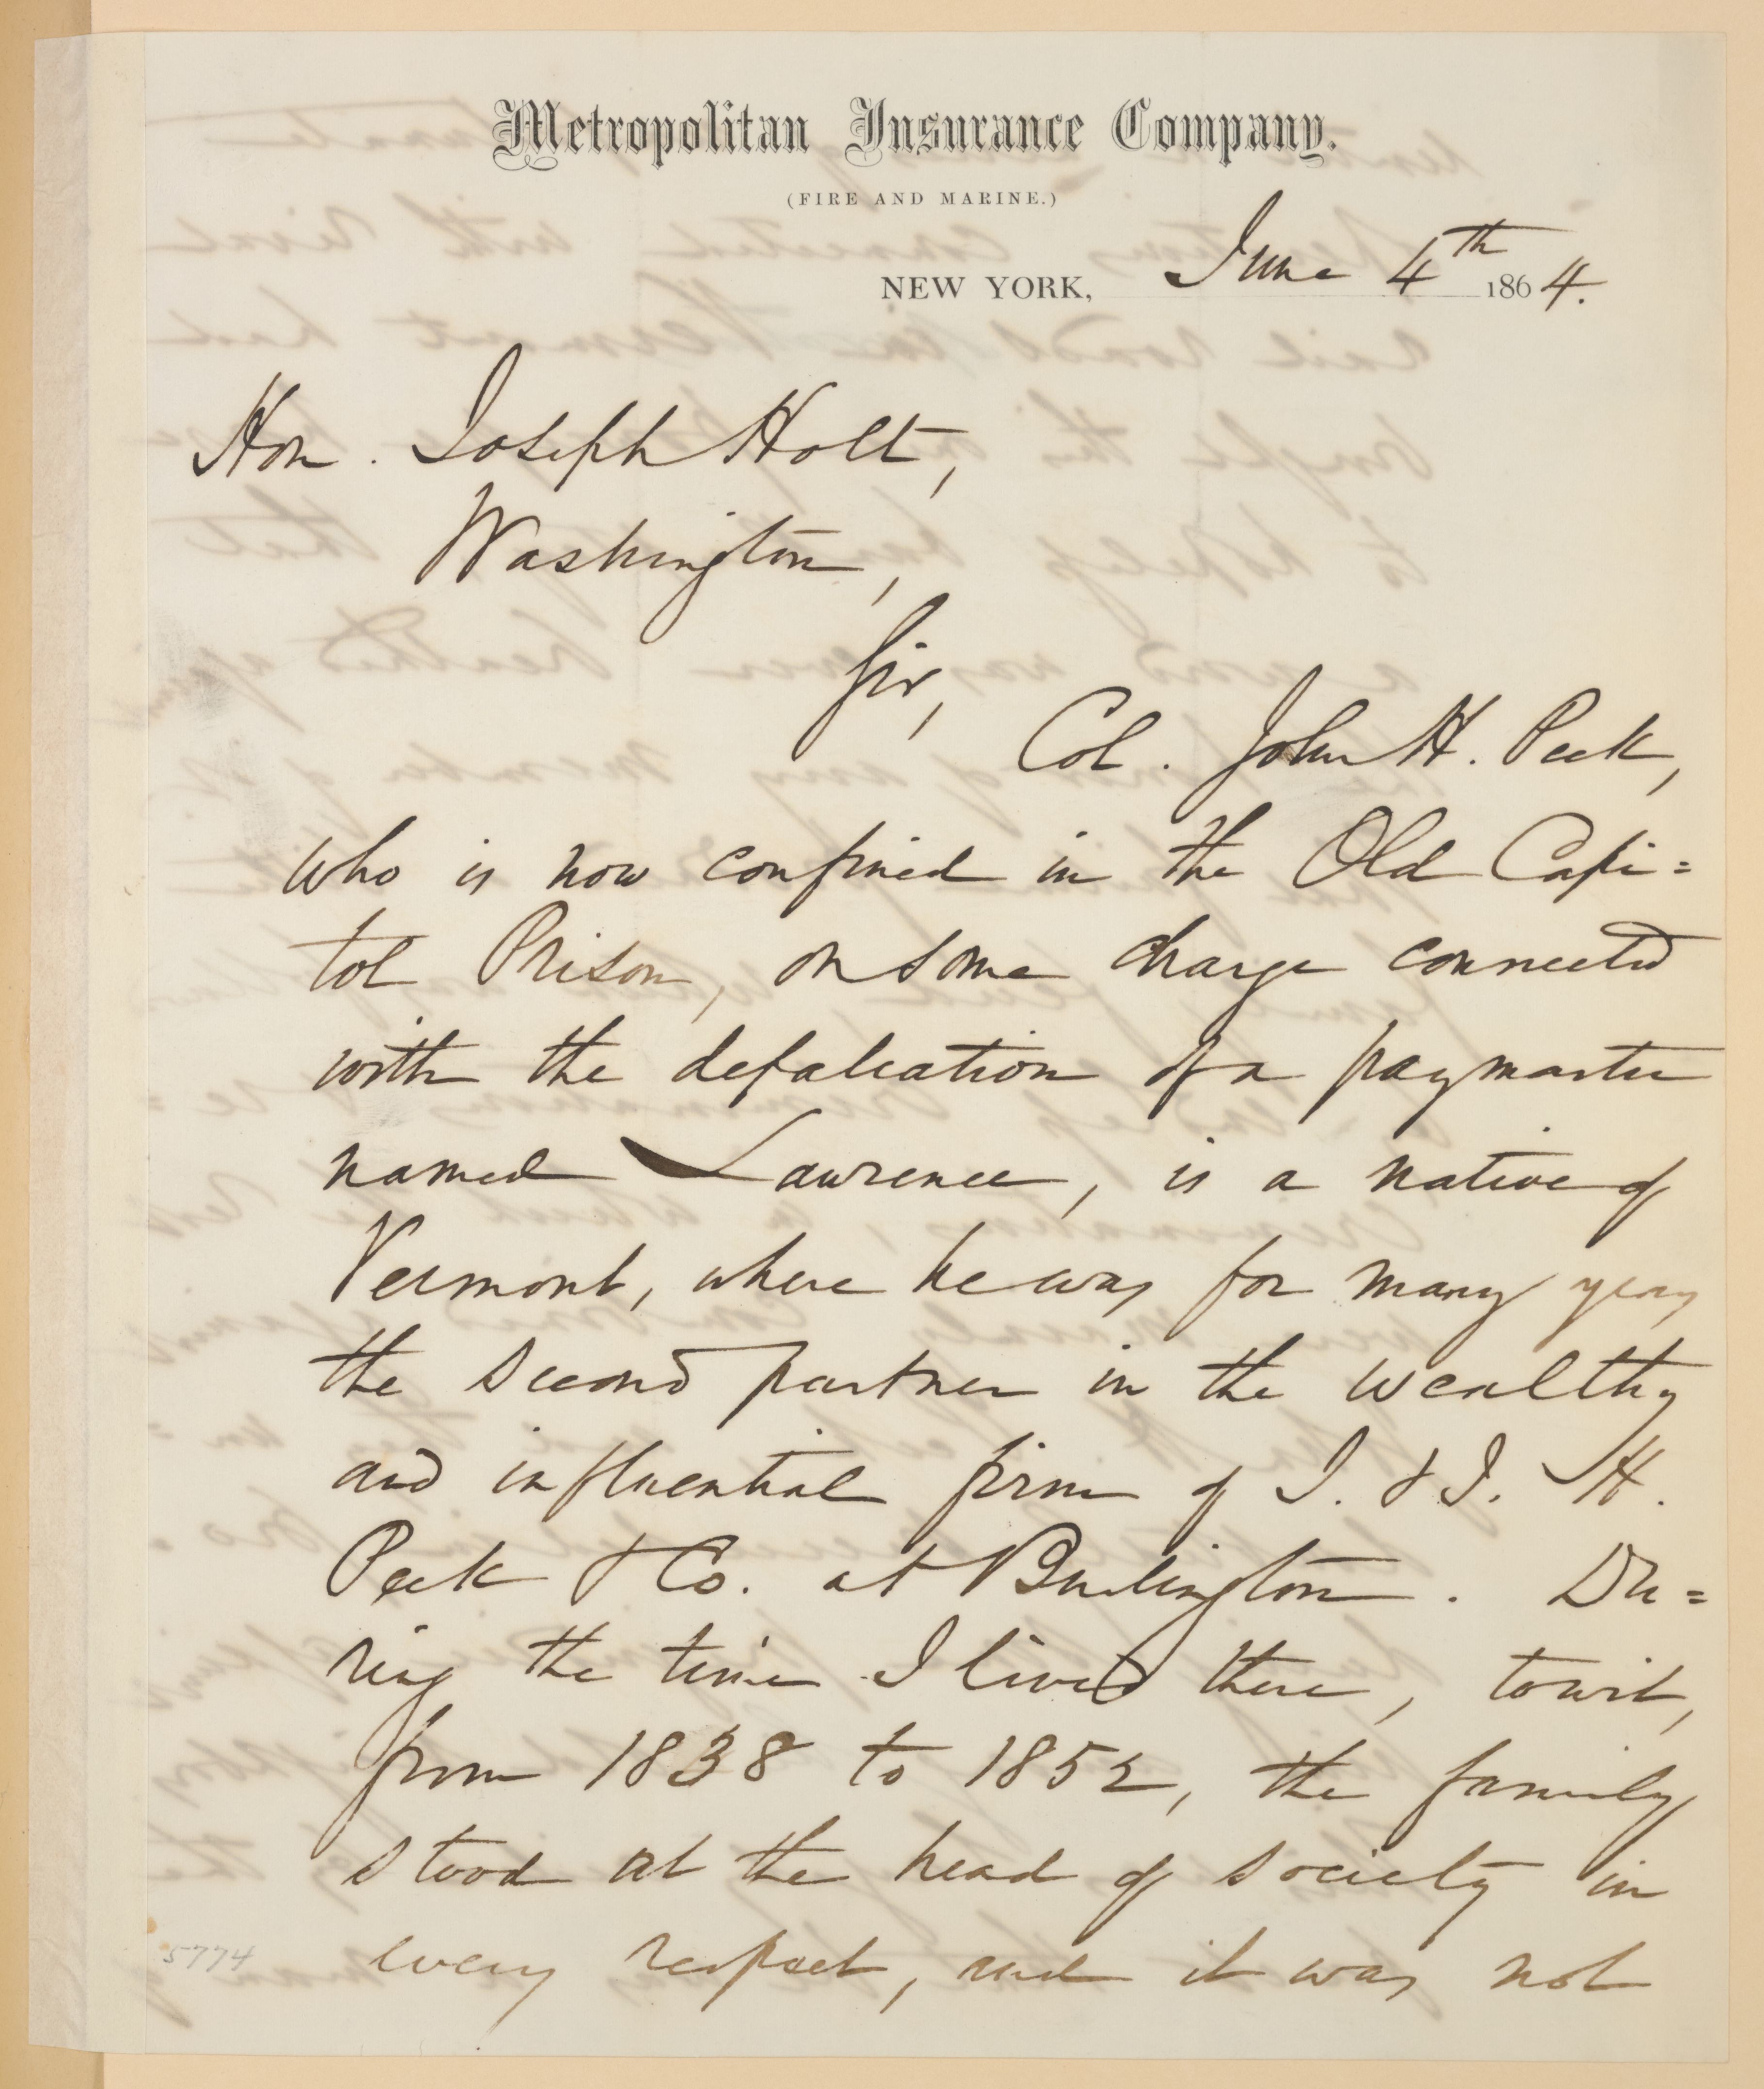 Metropolitan Insurance Company.
(FIRE AND MARINE.)
NEW YORK, June 4th 1864.
Hon. Joseph Holt,
Washington,
Sir,
Col. John H. Peck,
who is now confined in the Old Capi=
tol Prison, on some charge connected
with the defalcation of a paymaster
named Lawrence, is a native of
Vermont, where he was for many years
the second partner in the wealthy
and influential firm of J. & J. H.
Peck & Co. at Burlington. Du=
ring the time I lived there, towit,
from 1838 to 1852, the family
stood at the head of society in
every respect, and it was not
5774